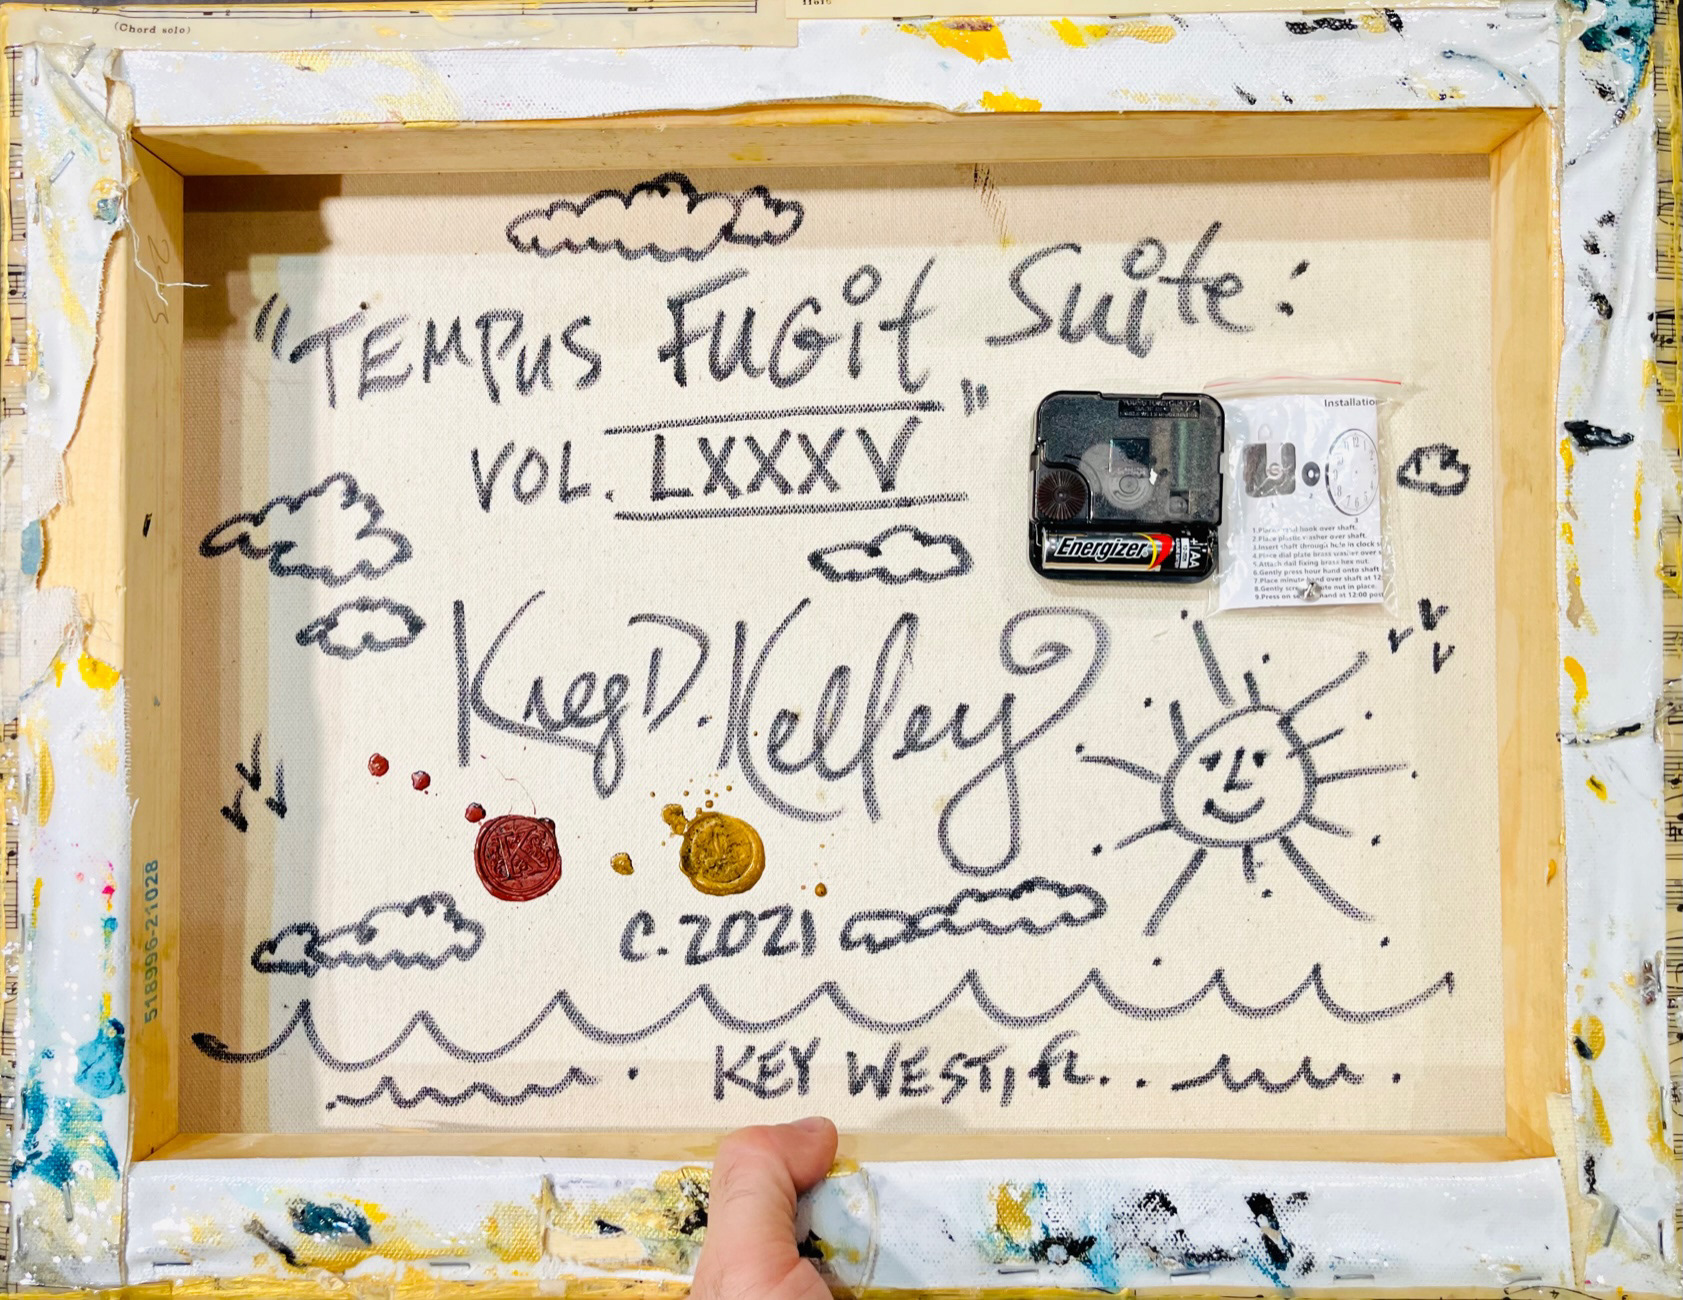 (Chord solo)
"TEMPUS FUGit" Suite:
VOL. LXXXV
Energizer
AA
Installation
1.Place
hook over shaft.
2.Place plastic washer over shaft.
3.Insert shaft through hole in clock
4.Place dial plate brass washer over
5.Attach dail fixing brass hex nut.
6.Gently press hour hand onto shaft
7.Place minute hand over shaft at 12
8.Gently
nut in place.
9.Press on
hand at 12:00
Kreg D. Kelley
K
C. 2021
KEY WEST, FL.
518996-21028